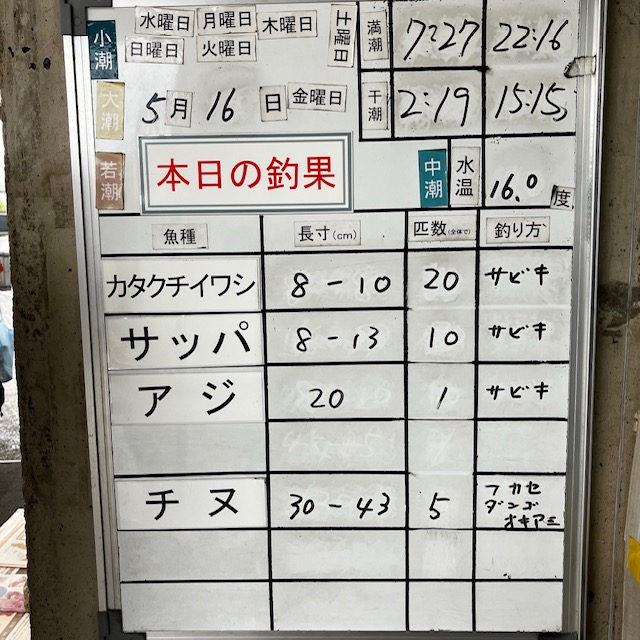 小潮 水曜日 月曜日 木曜日 土曜日 満潮 7:27 22:16
日曜日 火曜日
大潮 5月 16 日 金曜日 干潮 2:19 15:15
若潮 本日の釣果 中潮 水温 16.0 度
魚種 長寸(cm) 匹数(全体で) 釣り方
カタクチイワシ 8-10 20 サビキ
サッパ 8-13 10 サビキ
アジ 20 1 サビキ
チヌ 30-43 5 フカセ
ダンゴ
オキアミ